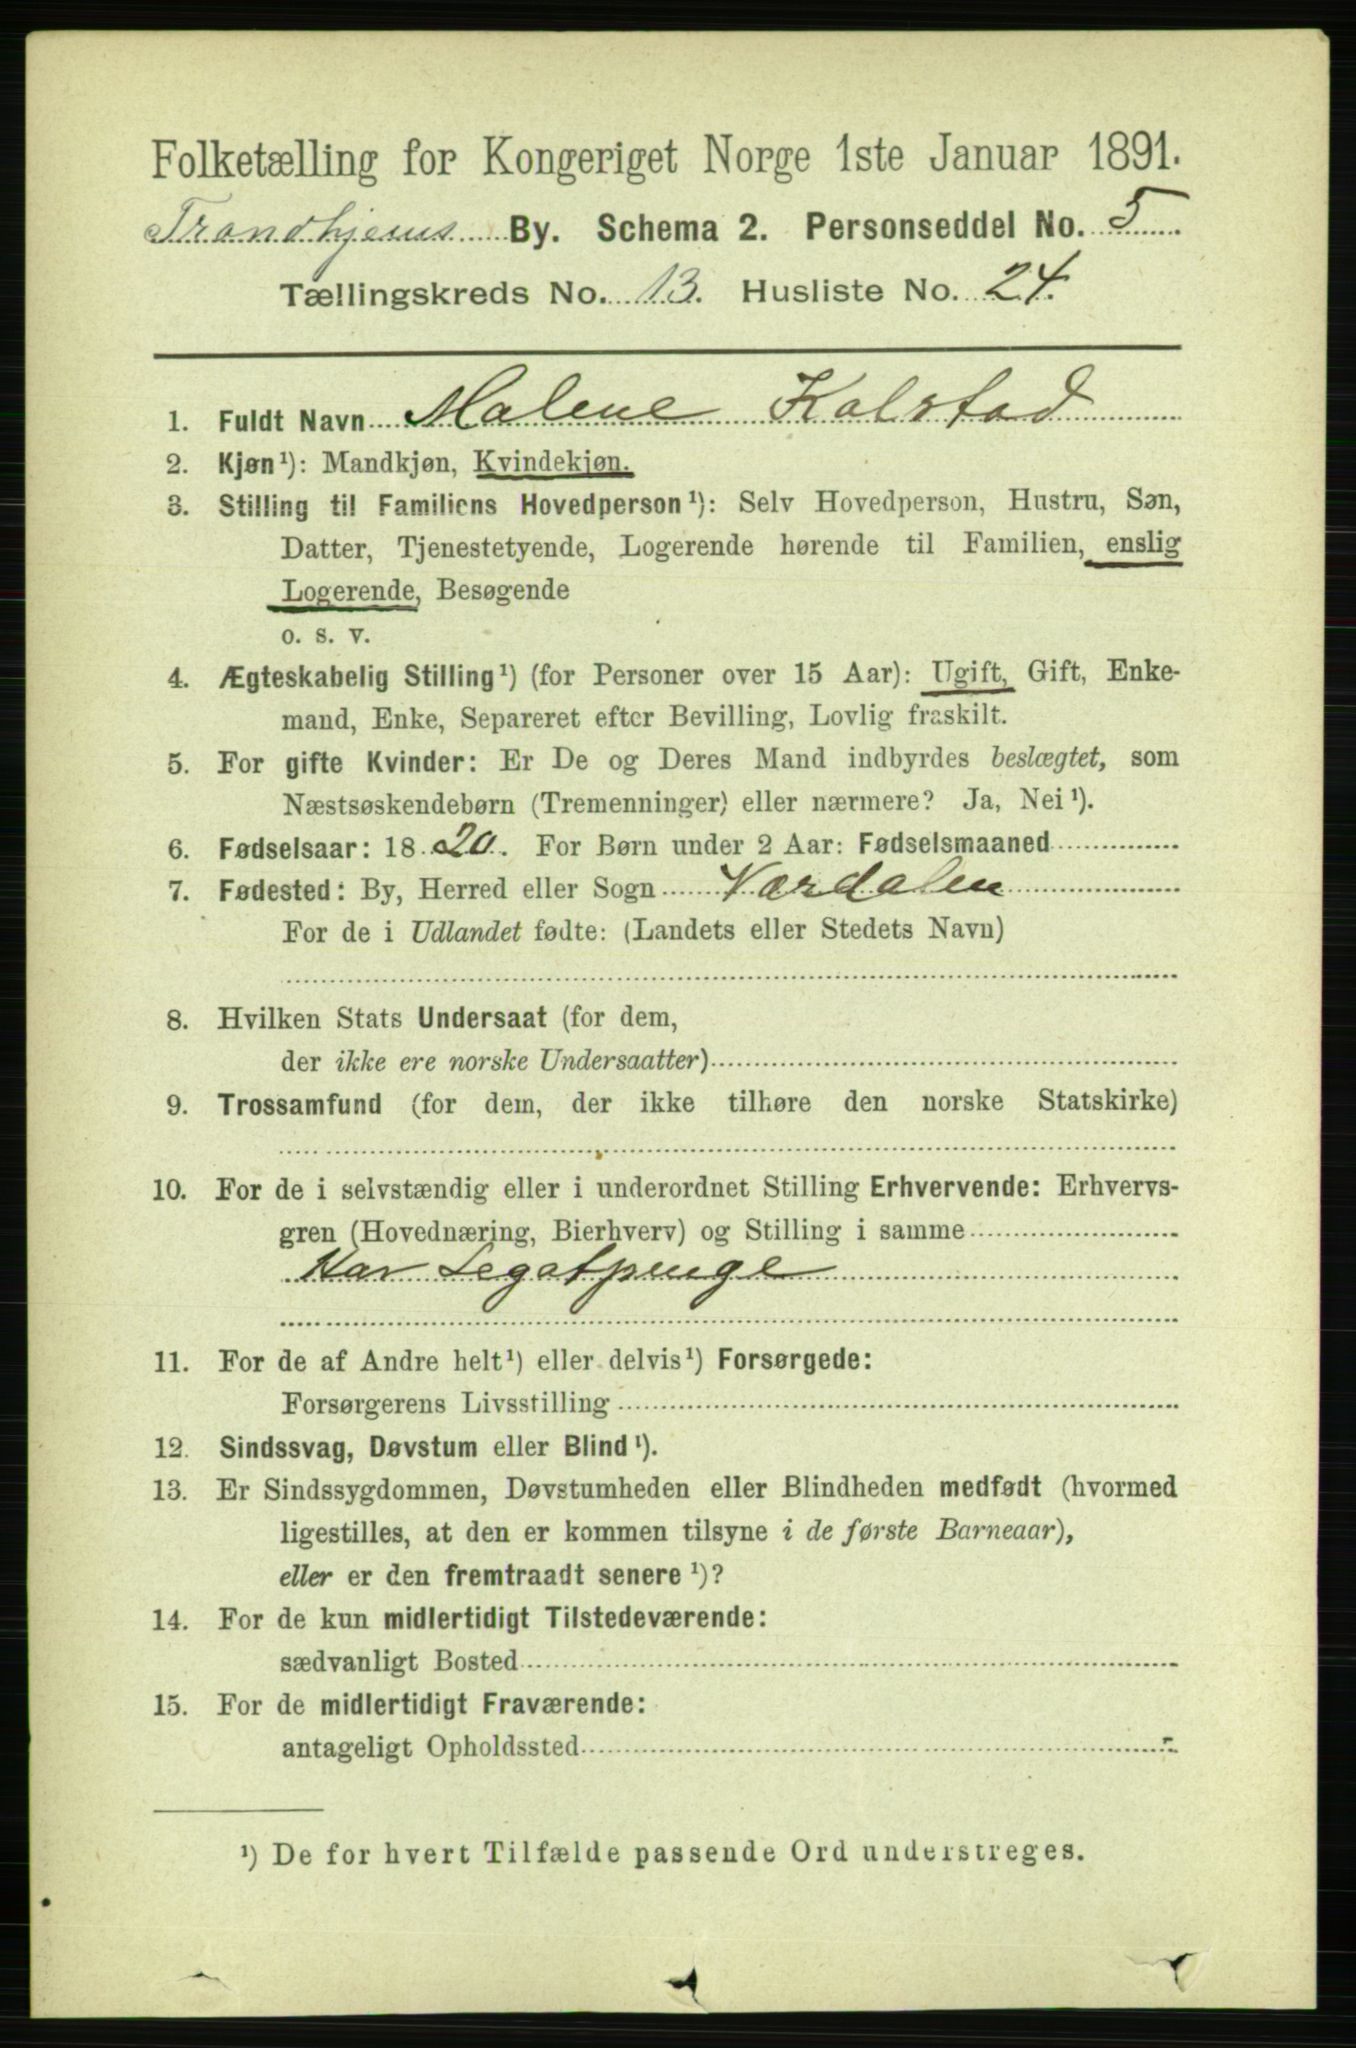 Folketælling for Kongeriget Norge 1ste Januar 1891.
Trondhjems By. Schema 2. Personseddel No. 5
Tællingskreds No. 13. Husliste No. 24.
1. Fuldt Navn Malene Kalstad
2. Kjøn¹): Mandkjøn, Kvindekjøn.
3. Stilling til Familiens Hovedperson¹): Selv Hovedperson, Hustru, Søn,
Datter, Tjenestetyende, Logerende hørende til Familien, enslig
Logerende, Besøgende
o. s. v.
4. Ægteskabelig Stilling¹) (for Personer over 15 Aar): Ugift, Gift, Enke-
mand, Enke, Separeret efter Bevilling, Lovlig fraskilt.
5. For gifte Kvinder: Er De og Deres Mand indbyrdes beslægtet, som
Næstsøskendebørn (Tremenninger) eller nærmere? Ja, Nei¹).
6. Fødselsaar: 1820. For Børn under 2 Aar: Fødselsmaaned
7. Fødested: By, Herred eller Sogn Værdalen
For de i Udlandet fødte: (Landets eller Stedets Navn)
8. Hvilken Stats Undersaat (for dem,
der ikke ere norske Undersaatter)
9. Trossamfund (for dem, der ikke tilhøre den norske Statskirke)
10. For de i selvstændig eller i underordnet Stilling Erhvervende: Erhvervs-
gren (Hovednæring, Bierhverv) og Stilling i samme
Har Legatpenge
11. For de af Andre helt¹) eller delvis¹) Forsørgede:
Forsørgerens Livsstilling
12. Sindssvag, Døvstum eller Blind¹).
13. Er Sindssygdommen, Døvstumheden eller Blindheden medfødt (hvormed
ligestilles, at den er kommen tilsyne i de første Barneaar),
eller er den fremtraadt senere¹)?
14. For de kun midlertidigt Tilstedeværende:
sædvanligt Bosted
15. For de midlertidigt Fraværende:
antageligt Opholdssted
¹) De for hvert Tilfælde passende Ord understreges.